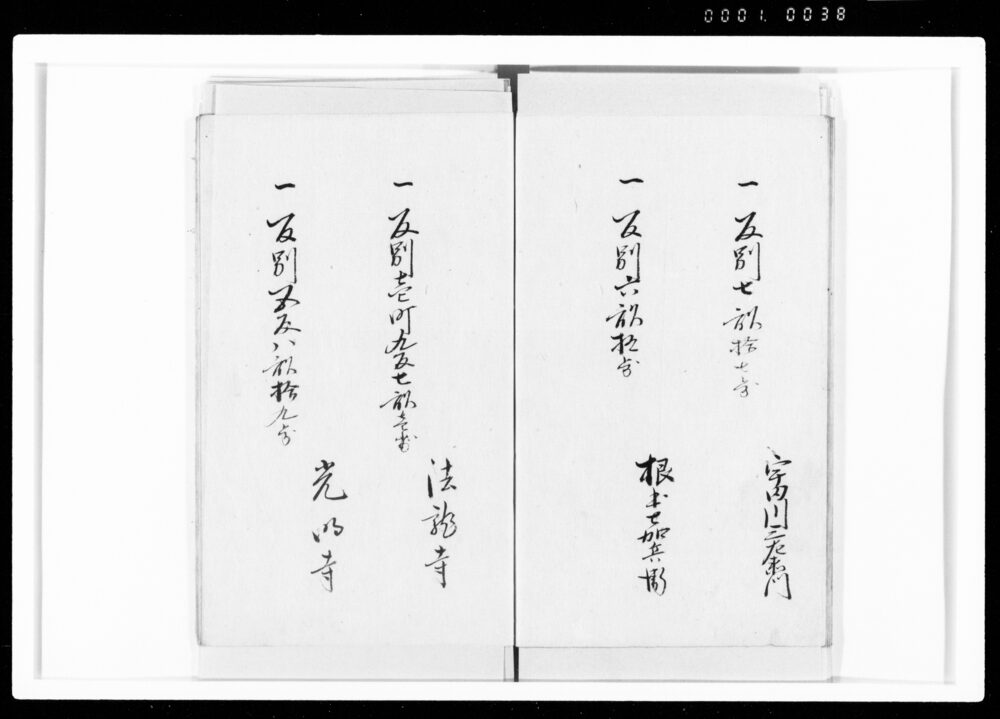 0001. 0038
一 反別七畝拾七歩
宇田川三左衛門
一 反別六畝拾歩
根本七加兵衛
一 反別壱町九反七畝壱歩
法龍寺
一 反別五反八畝拾九歩
光明寺